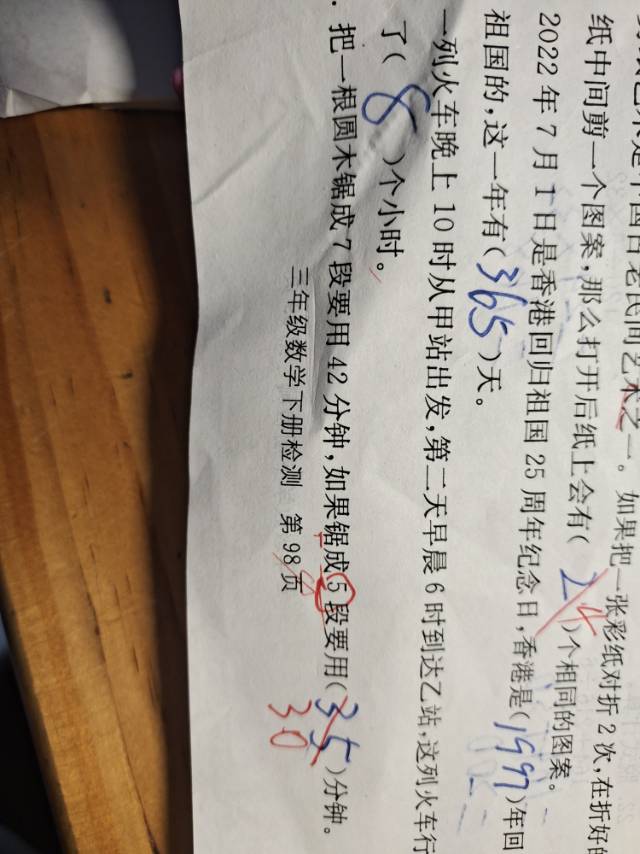 国古老民间艺术之一。如果把一张彩纸对折2次,在折好的
纸中间剪一个图案,那么打开后纸上会有( 2 4 )个相同的图案。
2022年7月1日是香港回归祖国25周年纪念日,香港是(1997)年回
祖国的,这一年有(365)天。
一列火车晚上10时从甲站出发,第二天早晨6时到达乙站,这列火车行
了( 8 )个小时。
把一根圆木锯成7段要用42分钟,如果锯成5段要用(35)分钟。
30
三年级数学下册检测 第98页